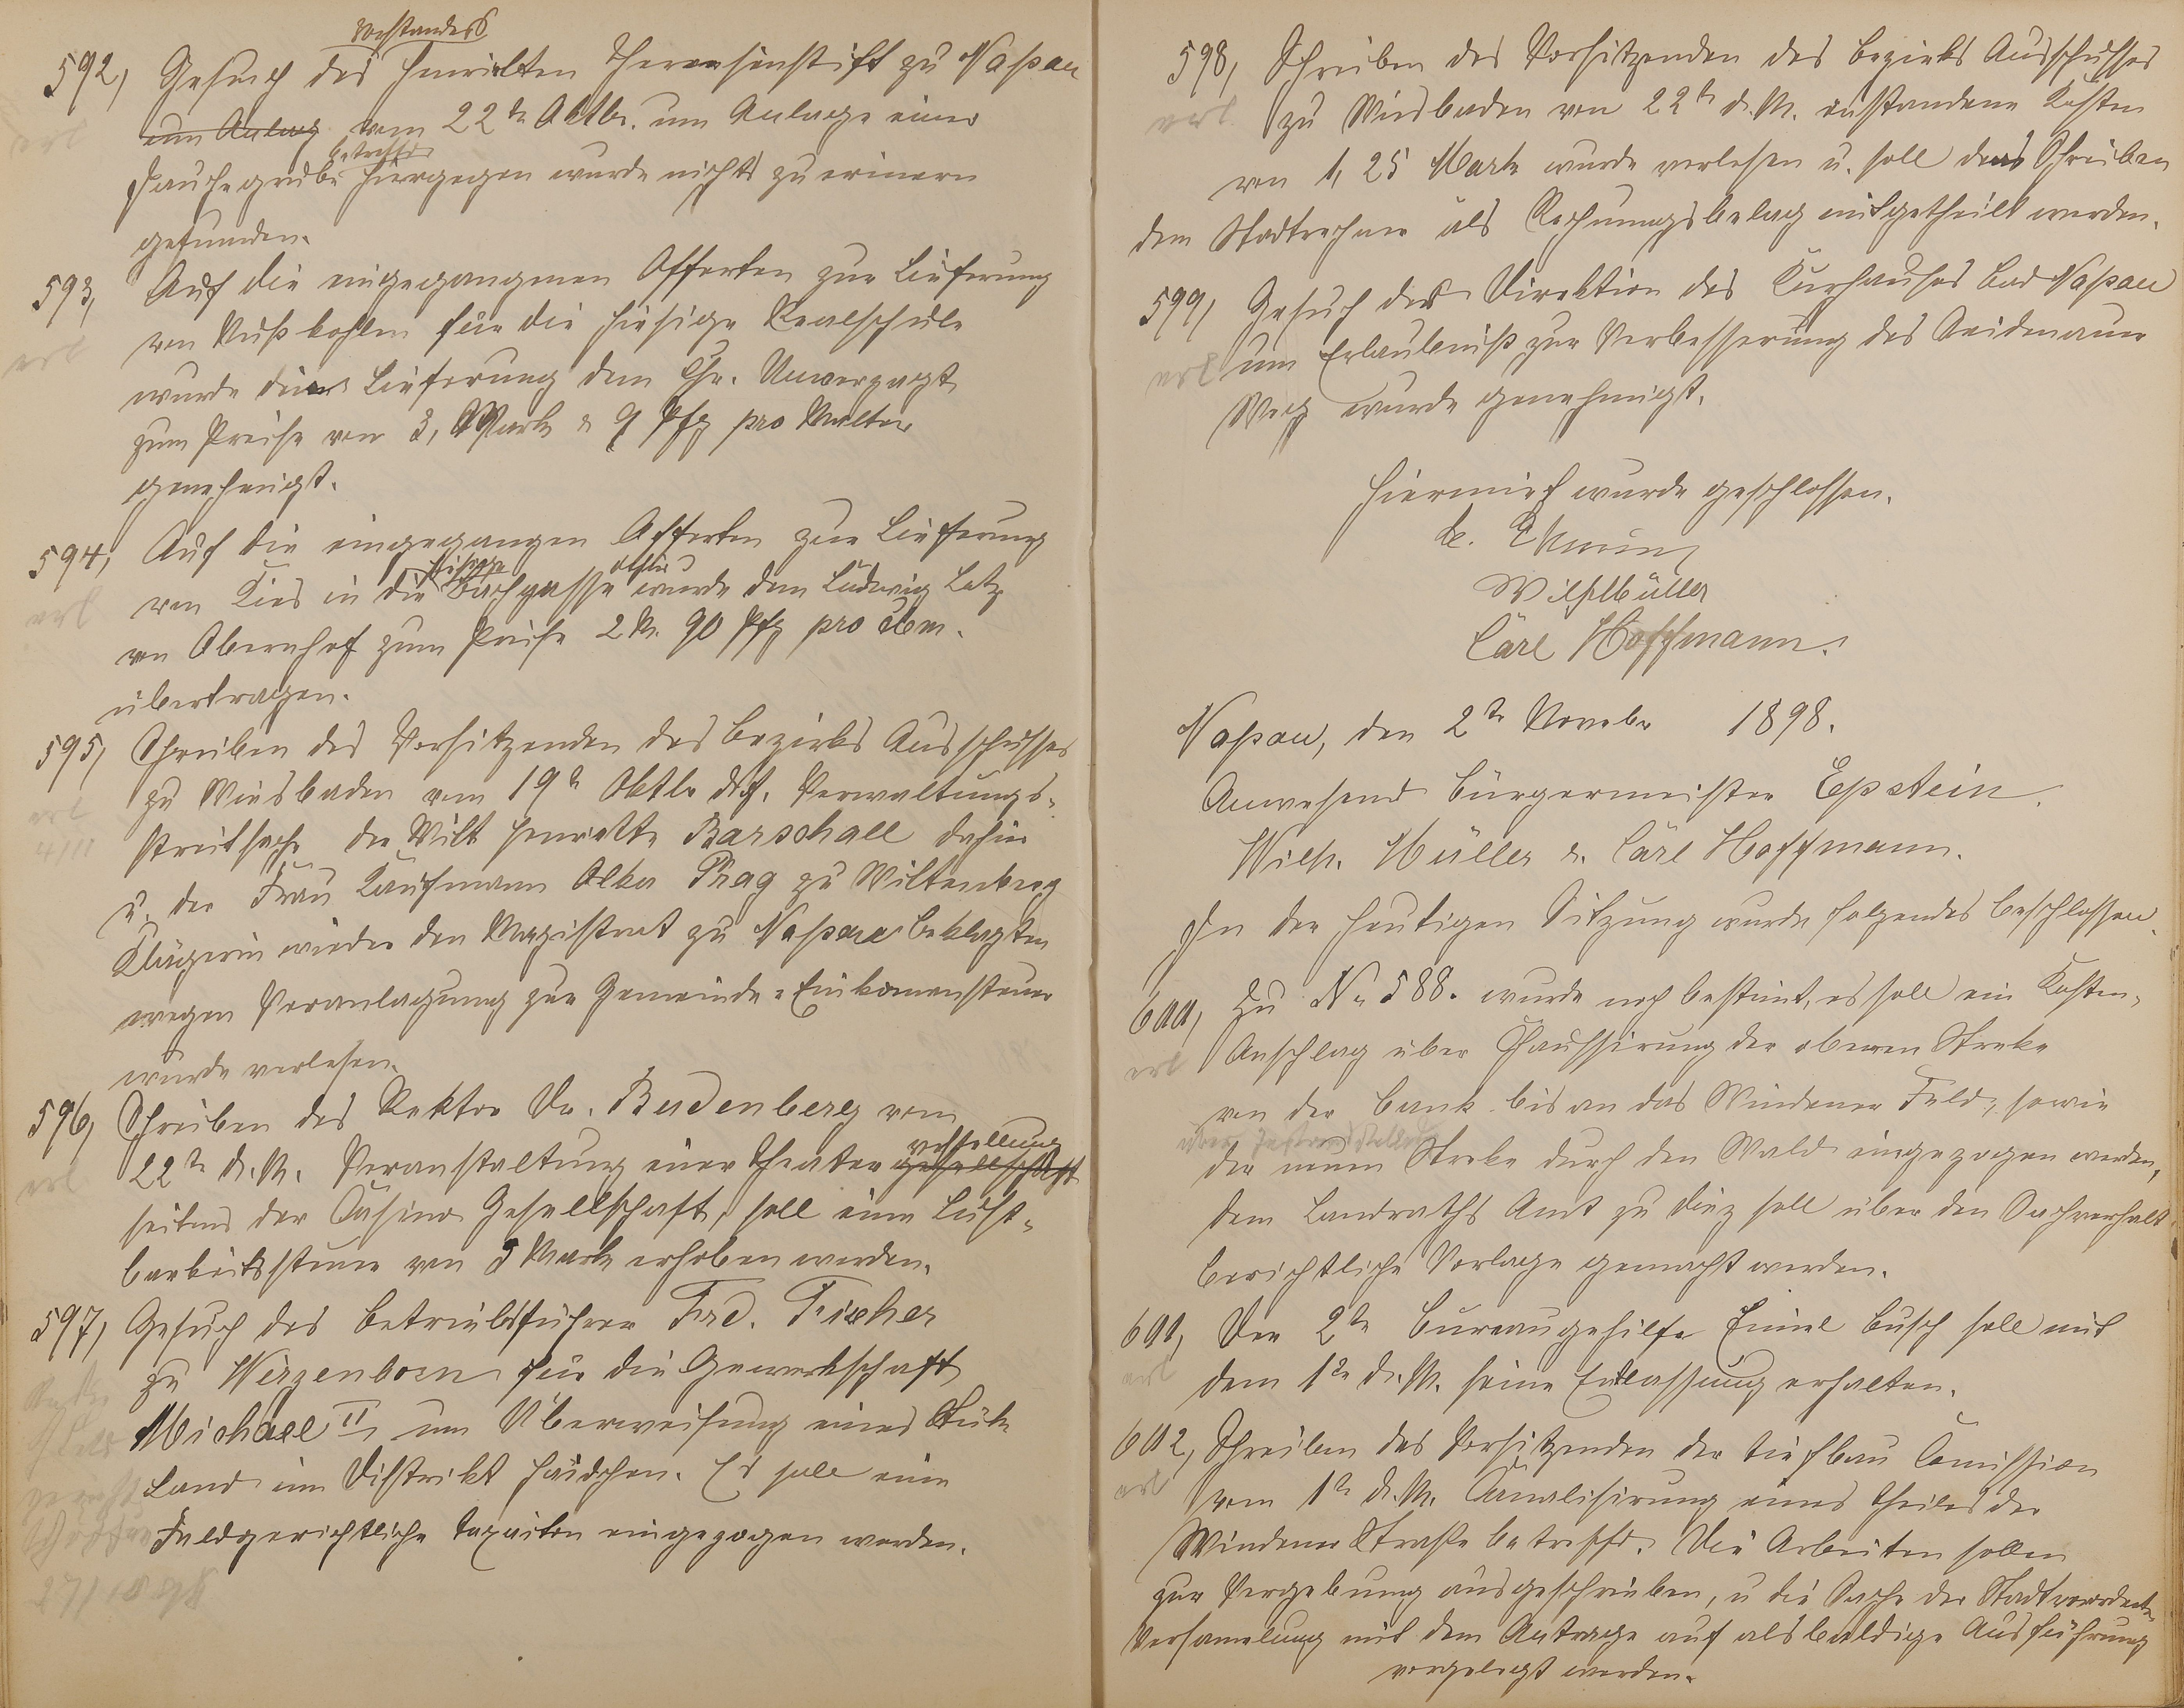 Vorstandes
592, Gesuch des Henrietten Theresenstift zu Naßau
um Anlag vom 22tn Oktbr. um Anlage einer
betreffd
Jauchegrube hiergegen wurde nichts zu erinern
gefunden.
593, Auf die eingegangenen Offerten zur Lieferung
von Nußkohlen für die hiesige Realschule
wurde diese Lieferung dem Chr. Unverzagt
zum Preise von 3, Mark & 9 Pfg pro Malter
genehmigt.
594, Auf die eingegangen Offerten zur Lieferung
von Kies in die Bachgasse wurde dem Ludwig Latz
von Obernhof zum Preise 2 M. 90 Pfg pro cbm.
übertragen.
595, Schreiben des Vorsitzenden des Bezirks Ausschusses
zu Wiesbaden vom 19tn Oktbr btf. Verwaltungs-
streitsache der Witt Henriette Barschall dahier
u. der Frau Kaufmann Prag zu Miltenberg
Klägerin wieder den Magistrat zu Naßau Beklagten
wegen Veranlagung zur Gemeinde-Einkomensteuer
wurde verlesen.
596, Schreiben des Rektor Dr. Budenberg vom
vorstellung
22tn d. M. Veranstaltung einer Theater gesellschaft
seitens der Casino Gesellschaft, soll eine Lust-
barkeitssteuer von 5 Mark erhoben werden.
597, Gesuch des Betriebsführer Frd. Fischer
zu Wirzenborn für die Gewerkschaft
Michael II, um Überweisung eines Stük
Land im Distrikt Haidchen. Es soll eine
Feldgerichtliche Taxation eingezogen werden.
598, Schreiben des Vorsitzenden des Bezirks Ausschusses
erl zu Wiesbaden von 22tn d. M. enstandene Kosten
von 1,25 Mark wurde verlesen u. soll das Schreiben
dem Stadtrechner als Rechnungsbelag mitgetheilt werden.
599, Gesuch der Direktion des Kurhauses Bad Naßau
erl um Erlaubniß zur Verbesserung des
Weg wurde genehmigt.
Hiermit wurde geschlossen.
Wilh Müller
Carl Hoffmann.
Naßau, den 2tn Novebr 1898.
Anwesend Bürgermeister Epstein.
Wilh. Müller & Carl Hoffmann.
In der heutigen Sitzung wurde folgendes beschlossen.
600, Zu No 588. wurde noch bestimt, es soll ein Kosten-
erl Anschlag über Chaussirung der oberen Streke
von der Bank bis an das Windener Feld, sowie
der neuen Streke durch den Wald eingezogen werden,
dem Landraths Amt zu Diez soll über den Sachverhalt
berichtliche Vorlage gemacht werden.
601, Der 2te Bureaugehilfe Emil Busch soll mit
erl dem 1tn d. M. seine Entlassung erhalten.
602, Schreiben des Vorsitzenden der Tiefbau Comission
erl vom 1tn d. M. Canalisirung eines Theiles der
Windener Straße betreffd. Die Arbeiten sollen
zur Vergebung ausgeschrieben, u die Sache der Stadtverordneten
Versamelung mit dem Antrage auf alsbaldige Ausführung
vorgelegt werden.